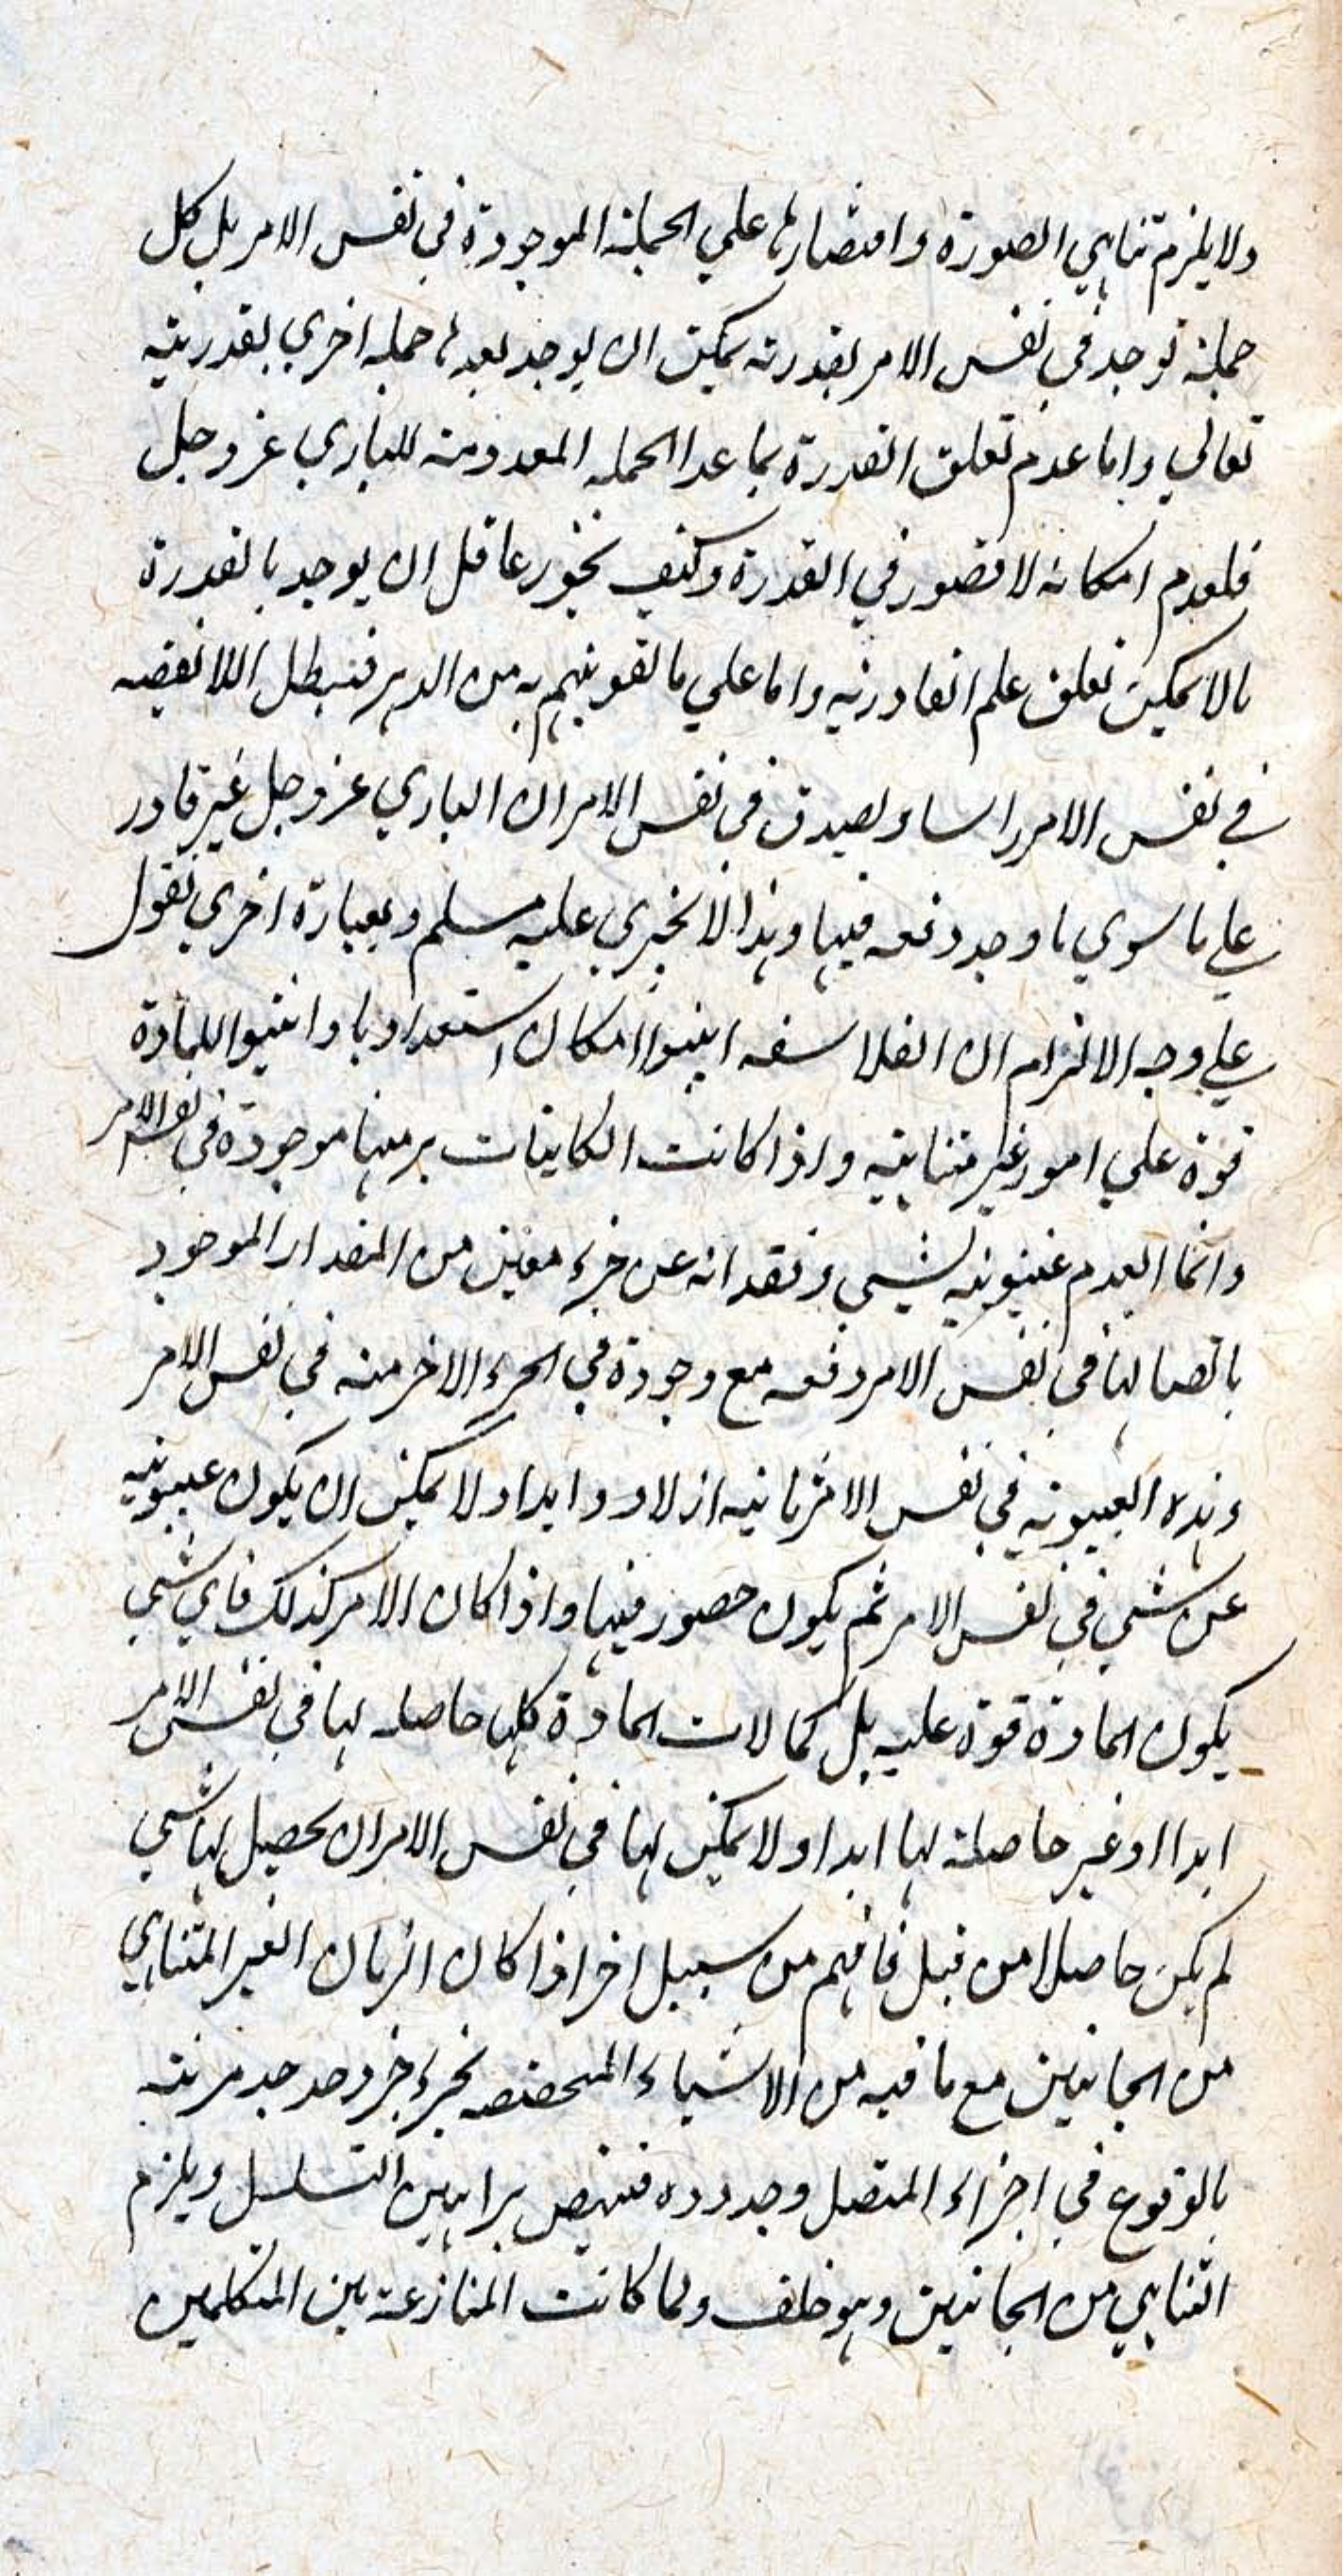 ولا يلزم تناهي الصورة واقتصارها علي الجملة الموجودة في نفس الامر بل كل
جملة توجد في نفس الامر بقدرته يمكن ان يوجد بعدها جمله اخري بقدرته
تعالي واما عدم تعلق القدرة بما عدا الجمله المعدومة للباري عز وجل
فلعدم امكانه لا قصور في القدرة وكيف يجوز عاقل ان يوجد بالقدرة
مالا يمكن تعلق علم القادر به واما علي ما تفوههم به من الدهر فتبطل اللانقضيه
في نفس الامر راسا و يصدق في نفس الامر ان الباري عز وجل غير قادر
علي ما سوي ما وجد دفعه فيها وهذا لا يجتري عليه مسلم وبعبارة اخري نقول
علي وجه الالزام ان الفلاسفه اثبتوا امكان استعداديا واثبتوا للمادة
قوة علي امور غير متناهيه واذا كانت الكاينات برمتها موجودة في نفس الامر
وانما العدم غيبوبته لشيي وفقدانه عن جزء معين من المقدار الموجود
باتصالها في نفس الامر دفعه مع وجودة في الجزء الاخر منه في نفس الامر
وهذه الغيبوبه في نفس الامر ثابته ازلا و ابدا ولا يمكن ان يكون غيبوبته
عن شيي في نفس الامر ثم يكون حضور فيها واذا كان الامر كذلك فاي شيي
يكون المادة قوة عليه بل كمالات المادة كلها حاصله لها في نفس الامر
ابدا او غير حاصلة لها ابدا ولا يمكن لها في نفس الامر ان يحصل لها شيي
لم يكن حاصلا من قبل فافهم من سبيل اخر اذا كان الزمان الغير المتناهي
من الجانبين مع ما فيه من الاشياء المختصه بجزء جزء وحد حد مرتبه
بالوقوع في اجزاء المتصل وحدوده فتنهض براهين التسلسل ويلزم
التناهي من الجانبين وهو خلف ولما كانت المنازعة بين المتكلمين